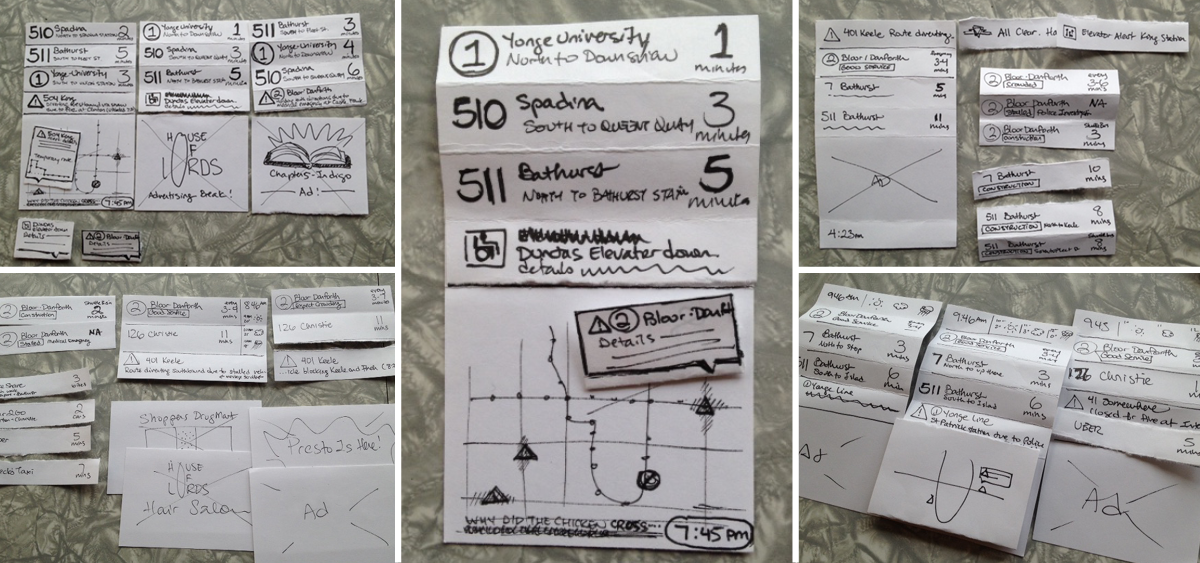 510 Spadina 2
minutes
511 Bathurst 5
minutes
1 Yonge University 3
minutes
504 King
504 King
7:45pm
Dundas
Elevator down
Details
1 Yonge University 1
North to Downsview
510 Spadina 3
511 Bathurst 5
minutes
Dundas Elevator down
details
HOUSE
OF
LORDS
Advertising Break!
2 Bloor Dan
Details
511 Bathurst 3
minutes
1 Yonge University 4
North to Downsview minutes
510 Spadina 6
minutes
2 Bloor Danforth
Chapters-Indigo
Ad!
1 Yonge University 1
North to Downsview minutes
510 Spadina 3
South to Queens Quay minutes
511 Bathurst 5
North to Bathurst Station minutes
Dundas Elevater down.
details
2 Bloor-Danf
Details
WHY DID THE CHICKEN CROSS...
7:45 pm
401 Keele. Route diverting.
2 Bloor/Danforth
GOOD SERVICE 3-4
mins
7 Bathurst 5
mins
511 Bathurst 11
mins
AD
4:23pm
All Clear. Ha
Elevator Alert King Station
2 Bloor Danforth every
Crowded 3-6
mins
2 Bloor Danforth NA
Stalled Police Investigat
2 Bloor Danforth
Construction 3
mins
7 Bathurst 10
CONSTRUCTION mins
511 Bathurst 8
CONSTRUCTION mins
511 Bathurst 8
mins
2 Bloor Danforth
Construction
2 Bloor Danforth NA
Stalled Medical Emergency
Share 3
2
mins
5
mins
Taxi 7
mins
2 Bloor Danforth every
Good Service 3-4
mins
8:46
126 Christie 11
mins
401 Keele
Route diverting Southbound due to stalled
Shoppers DrugMart
HOUSE
OF
LORDS
Hair Salon
2 Bloor Danforth every
Expect Crowding 3-7
minutes
126 Christie 11
mins
401 Keele
blocking Keele and
Presto Is Here!
Ad
9:46AM
2 Bloor Danforth
Good Service
7 Bathurst 3
mins
511 Bathurst 6
South to Island mins
1 Yonge Line
Ad
9:46 AM
2 Bloor Danforth
GOOD SERVICE 3-4
mins
7 Bathurst 3
mins
511 Bathurst 6
South to Island mins
1 Yonge Line
St Patrick station due to Police
9:43
2 Bloor Danforth
Good Service
126 Christie
41 Somewhere
Closed for fire at
UBER 5
mins
Ad